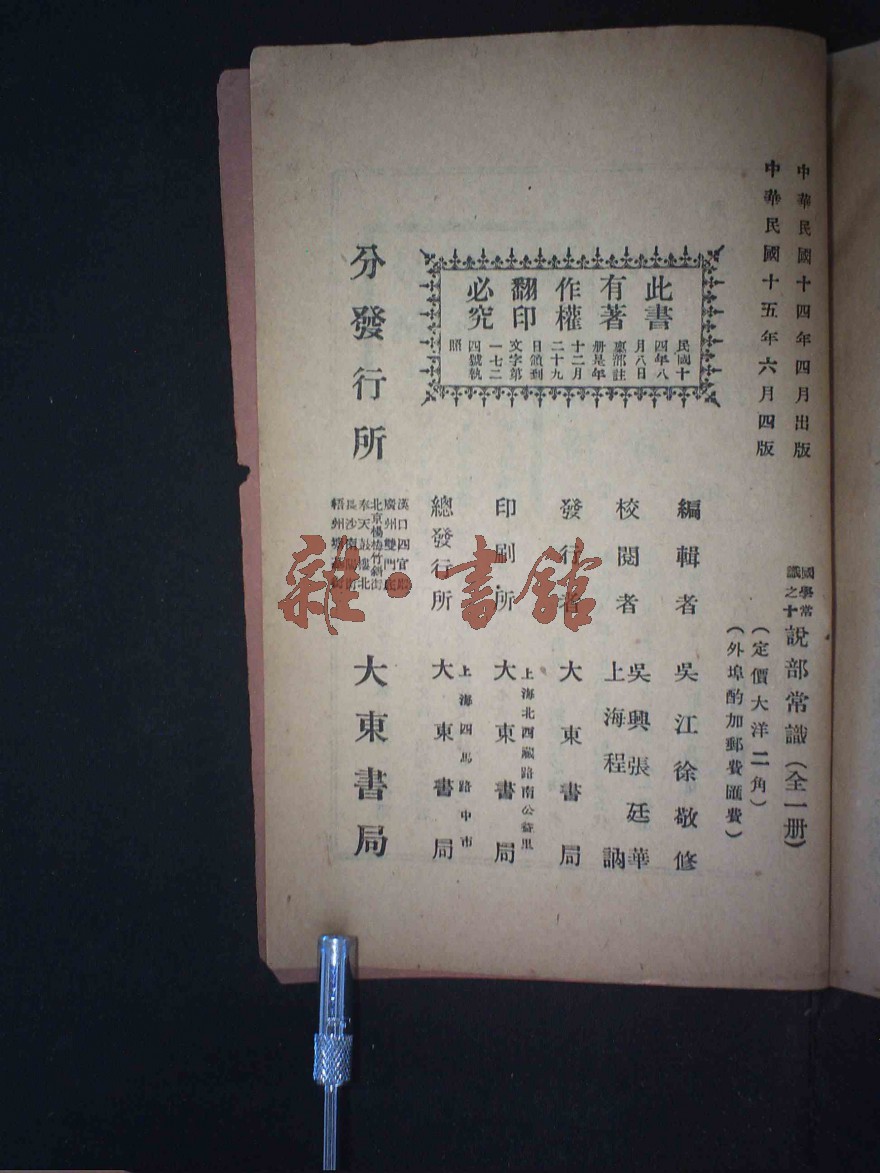 中華民國十四年四月出版
中華民國十五年六月四版
國學常識之十
說部常識(全一册)
(定價大洋二角)
(外埠酌加郵費匯費)
此書有著作權翻印必究
民國十四年八月八日稟部註册是年十二月二十九日領到文字第一七二四號執照
編輯者 吳江徐敬修
校閱者 吳興張廷華
上海程訥
發行者 大東書局
印刷所 上海北西藏路南公益里
大東書局
總發行所 上海四馬路中市
大東書局
分發行所
漢口四官殿
廣州雙門底
北京楊梅竹斜街
奉天鼓樓北
長沙南陽街
梧州
大東書局
雜·書館